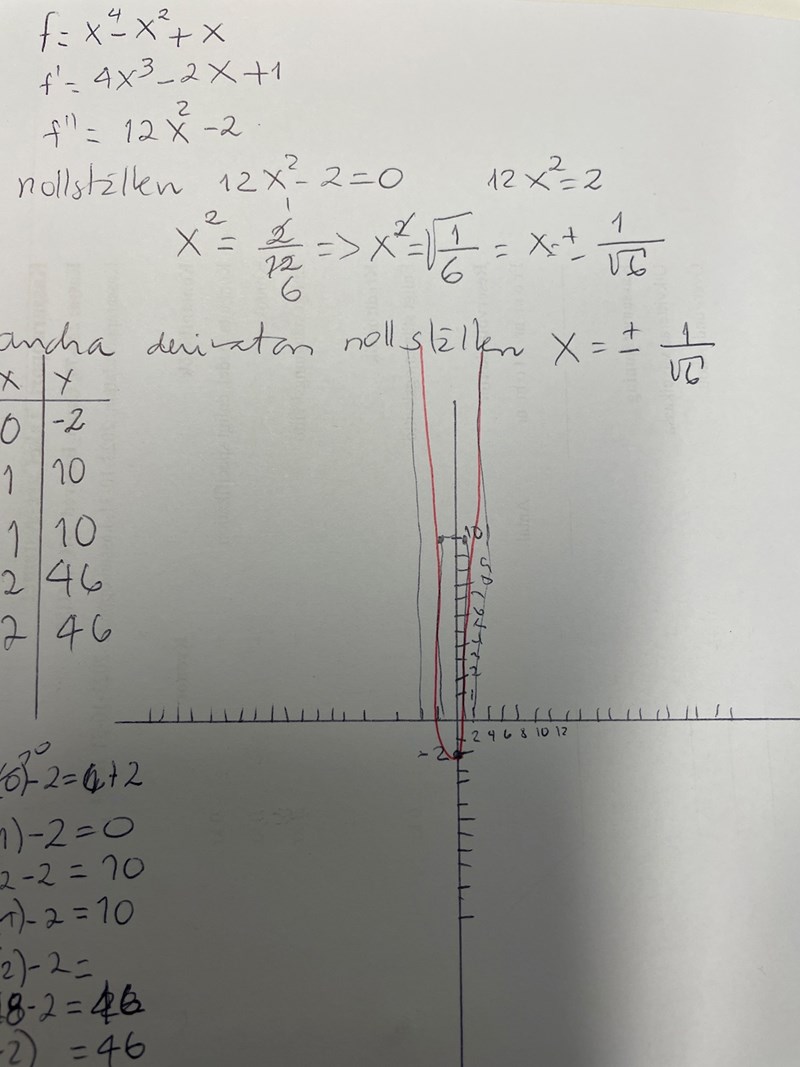 f = x⁴ - x² + x
f' = 4x³ - 2x + 1
f'' = 12x² - 2
nollställen 12x² - 2 = 0 12x² = 2
x² = 2/12 1/6 => x² = √1/6 = x = ± 1/√6
andra derivatan nollställen x = ± 1/√6
x y
0 -2
1 10
1 10
2 46
2 46
10
-2
2 4 6 8 10 12
- 2 = + 2
1) - 2 = 0
2 - 2 = 10
1) - 2 = 10
2) - 2 =
8 - 2 = 46
2) = 46